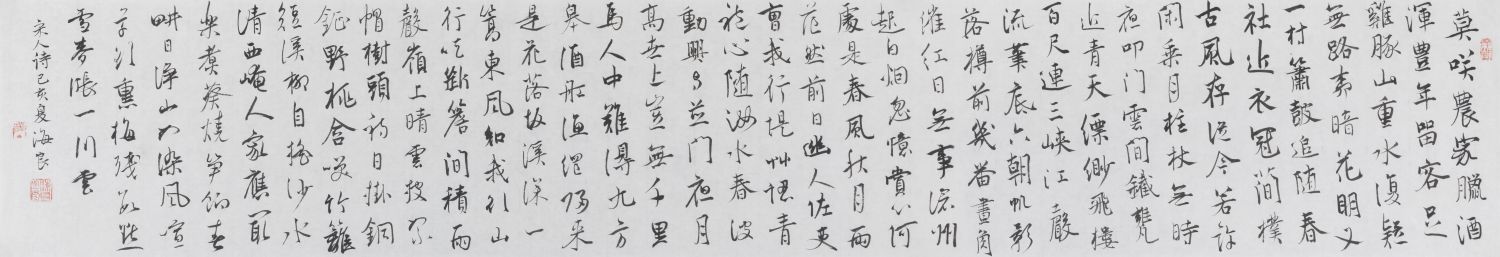 莫咲農家臘酒
渾豊年留客足
雞豚山重水復疑
無路柳暗花明又
一村簫鼓追随春
社近衣冠簡樸
古風存從今若許
閑乗月拄杖無時
夜叩門雲間鐵甕
近青天縹緲飛樓
百尺連三峽江聲
流筆底六朝帆影
落樽前幾番畫角
催紅日無事滄州
起白烟忽憶賞心何
處是春風秋月兩
茫然前日幽人佐吏
曹我行堤艸認青
袍心随汝水春波
動興與並門夜月
高世上豈無千里
馬人中難得九方
皋酒船漁網歸來
是花落故溪深一
篙東風知我欲山
行吹斷簷間積雨
聲嶺上晴雲披絮
帽樹頭初日掛銅
鉦野桃含笑竹籬
短溪柳自搖沙水
清西崦人家應最
樂煮葵燒筍餉春
畊日浄山如染風暄
草欲薰梅殘數點
雪麥漲一川雲
宋人詩己亥夏海良